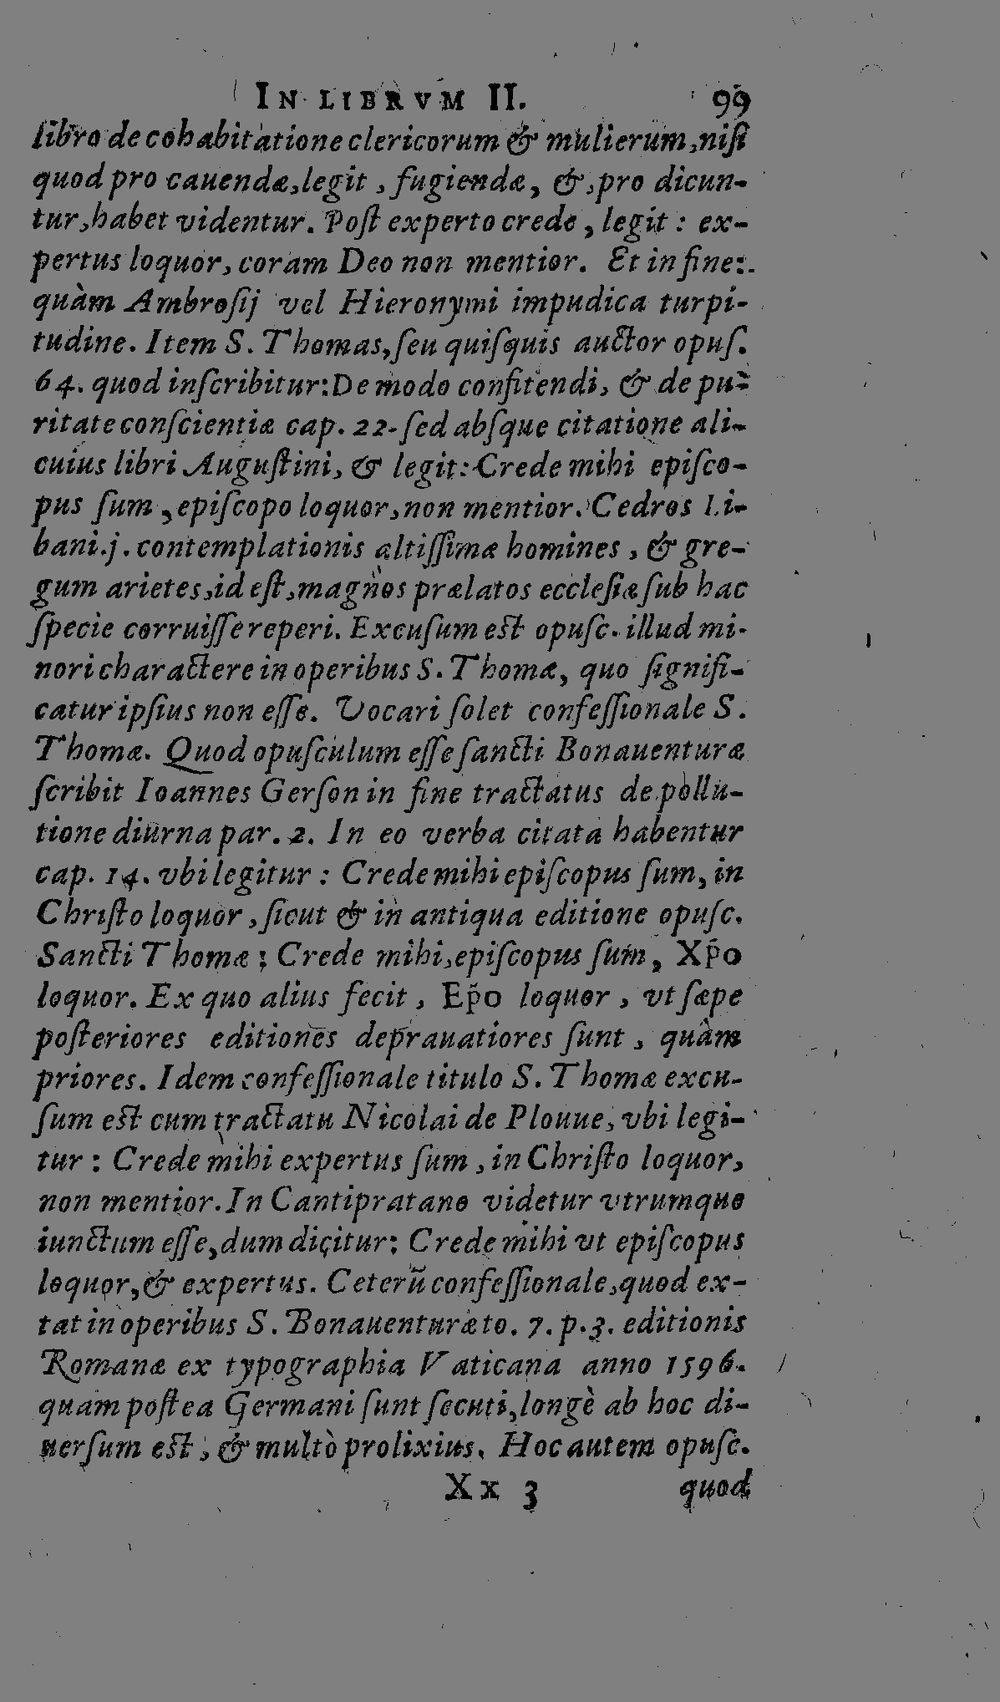 IN LIBRVM II. 99
libro de cohabitatione clericorum & mulierum, niſi
quod pro cauendæ, legit, fugiendæ, &, pro dicun-
tur, habet videntur. Poſt experto crede, legit: ex-
pertus loquor, coram Deo non mentior. Et in fine:
quàm Ambroſij vel Hieronymi impudica turpi-
tudine. Item S. Thomas, ſeu quiſquis auctor opuſ.
64. quod inſcribitur: De modo confitendi, & de pu-
ritate conſcientiæ cap. 22. ſed abſque citatione ali-
cuius libri Auguſtini, & legit: Crede mihi epiſco-
pus ſum, epiſcopo loquor, non mentior. Cedros Li-
bani. j. contemplationis altiſſimæ homines, & gre-
gum arietes, id eſt, magnos prælatos eccleſiæ ſub hac
ſpecie corruiſſe reperi. Excuſum est opuſc. illud mi-
nori charactere in operibus S. Thomæ, quo ſignifi-
catur ipſius non eſſe. Vocari ſolet confeſſionale S.
Thomæ. Quod opuſculum eſſe ſancti Bonauenturæ
ſcribit Ioannes Gerſon in fine tractatus de pollu-
tione diurna par. 2. In eo verba citata habentur
cap. 14. vbi legitur: Crede mihi epiſcopus ſum, in
Chriſto loquor, ſicut & in antiqua editione opuſc.
Sancti Thomæ; Crede mihi, epiſcopus ſum, Xp̃o
loquor. Ex quo alius fecit, Ep̃o loquor, vt ſæpe
poſteriores editiones deprauatiores ſunt, quàm
priores. Idem confeſſionale titulo S. Thomæ excu-
ſum est cum tractatu Nicolai de Plouue, vbi legi-
tur: Crede mihi expertus ſum, in Chriſto loquor,
non mentior. In Cantipratano videtur vtrumque
iunctum eſſe, dum dicitur: Crede mihi vt epiſcopus
loquor, & expertus. Ceterũ confeſſionale, quod ex-
tat in operibus S. Bonauenturæ to. 7. p. 3. editionis
Romanæ ex typographia Vaticana anno 1596.
quam poſtea Germani ſunt ſecuti, longè ab hoc di-
uerſum est, & multò prolixius. Hoc autem opuſc.
Xx 3 quod